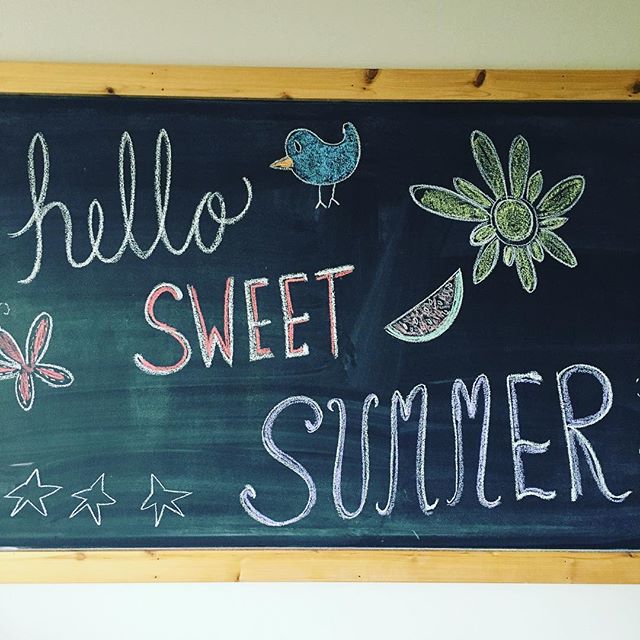 hello
SWEET
SUMMER